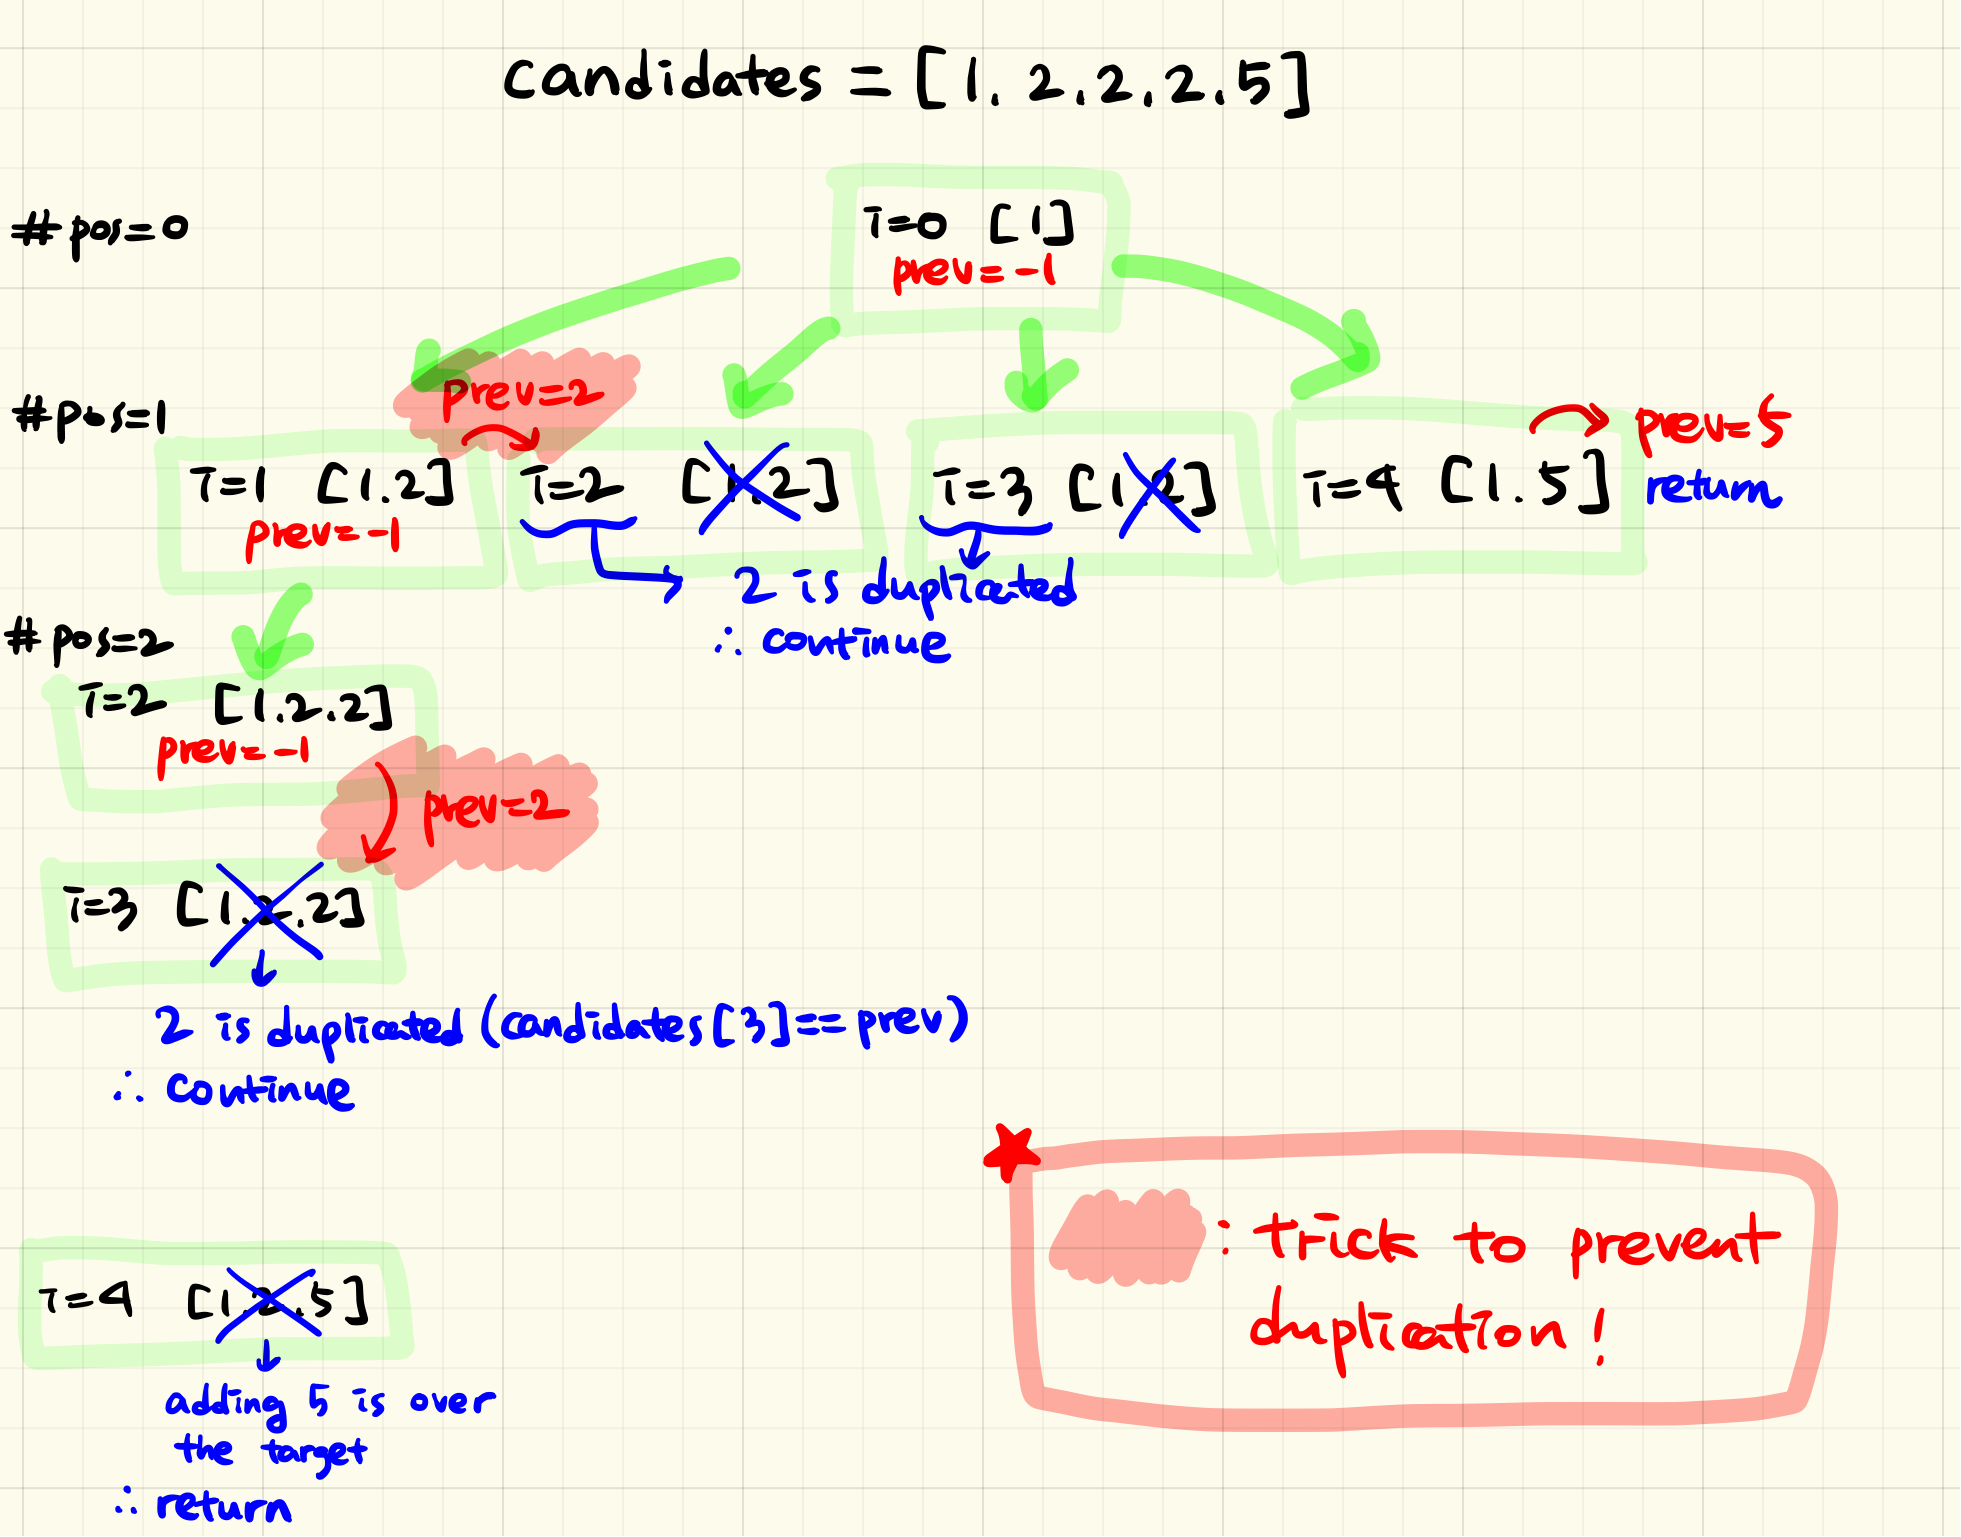 candidates = [1. 2. 2. 2. 5]
#pos=0
i=0 [1]
prev=-1
#pos=1
prev=2
prev=5
i=1 [1.2]
prev=-1
i=2 [1.2]
i=3 [1.2]
i=4 [1.5]
return
2 is duplicated
∴ continue
#pos=2
i=2 [1.2.2]
prev=-1
prev=2
i=3 [1.2.2]
2 is duplicated (candidates[3]==prev)
∴ continue
i=4 [1.2.5]
adding 5 is over
the target
∴ return
: trick to prevent
duplication!